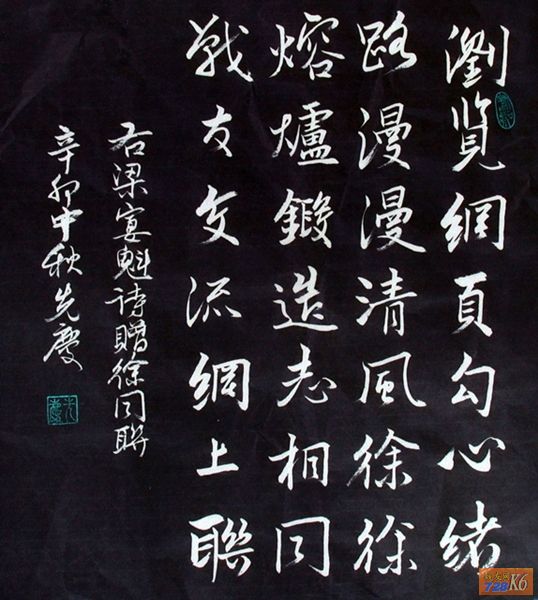 瀏覧網頁勾心緒
路漫漫清風徐徐
熔爐鍛造志相同
戰友交流網上聯
右梁宴魁诗贈徐同聯
辛卯中秋先慶
728K6